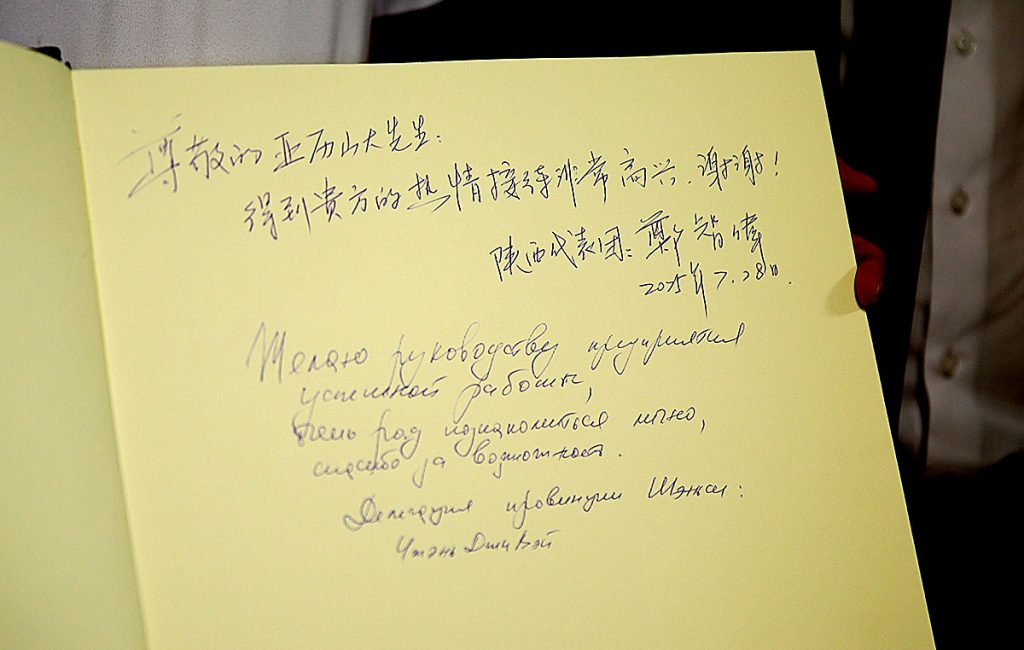 尊敬的亚历山大先生：
得到贵方的热情接待非常高兴．谢谢！
陕西代表团：鄭智偉
2025年7.28日.
Желаю руководству предприятия
успешной работы,
очень рад познакомиться лично,
спасибо за возможность.
Делегация провинции Шэньси:
Чжэнь Джи Вэй